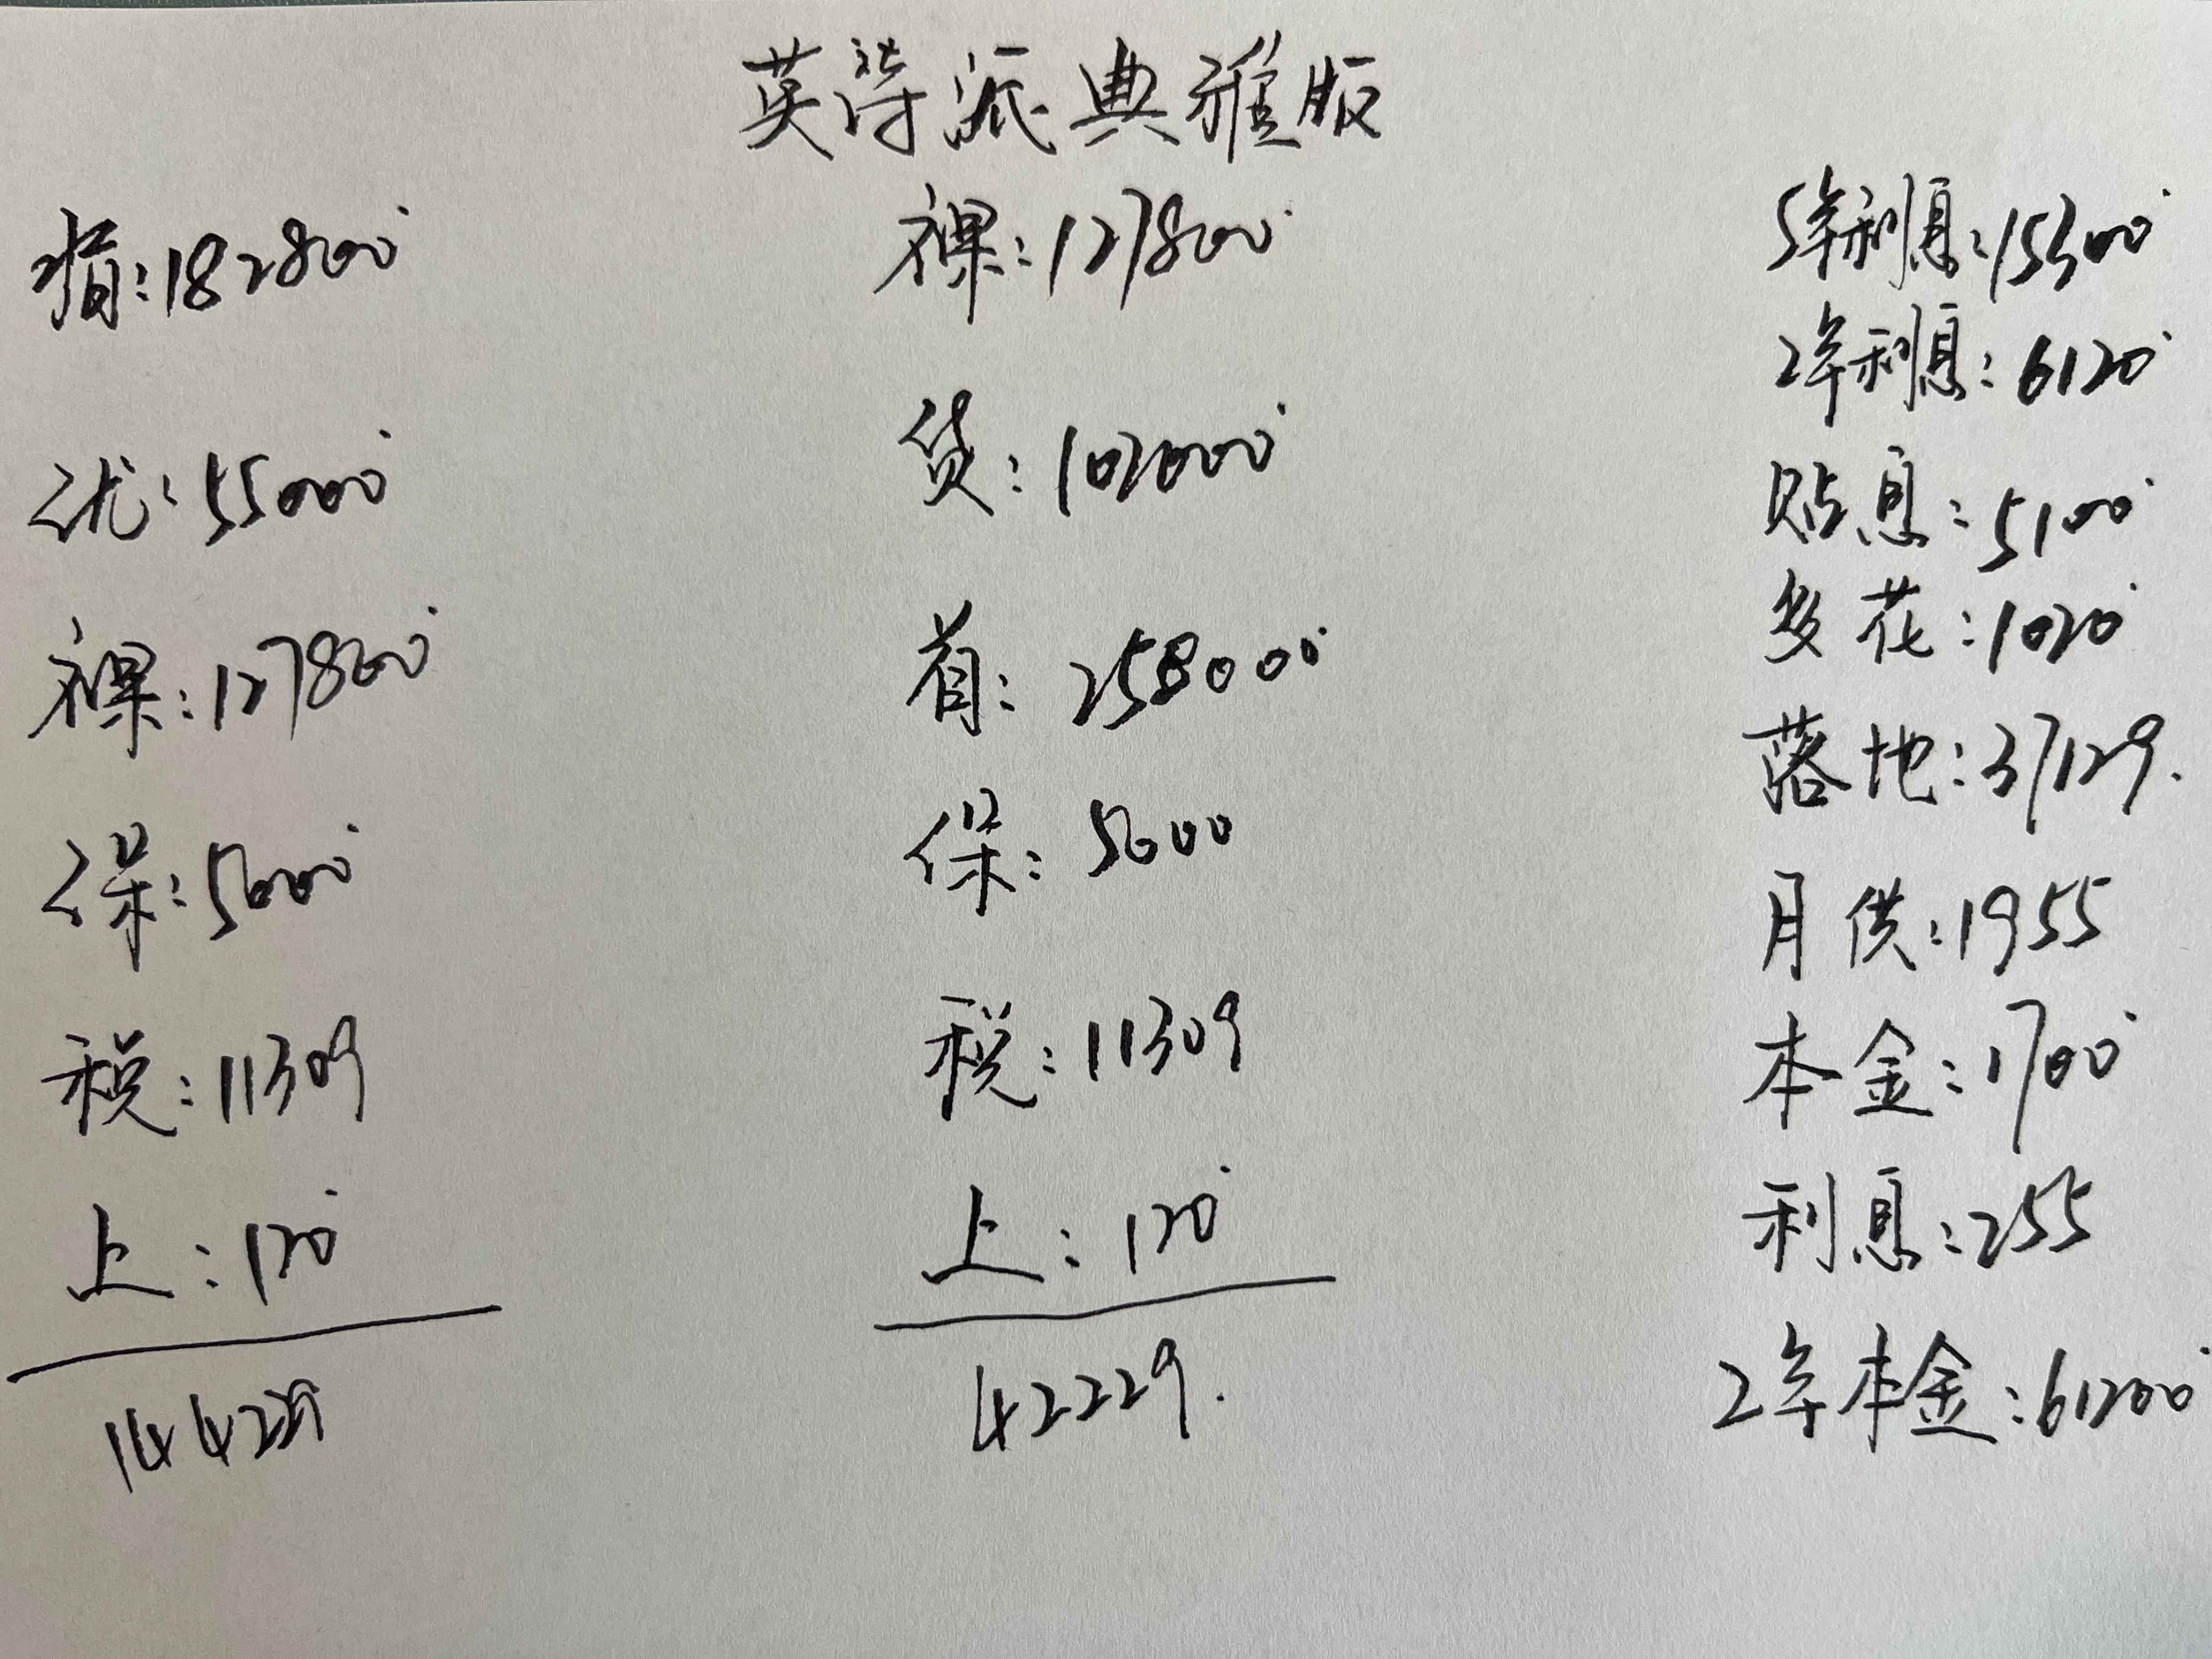 英诗派典雅版
指:182800
优:55000
裸:127800
保:5000
税:11309
上:120
144229
裸:127800
贷:102000
首:258000
保:5000
税:11309
上:120
42229.
5年利息:15300
2年利息:6120
贴息:5100
多花:1020
落地:37129.
月供:1955
本金:1700
利息:255
2年本金:61200